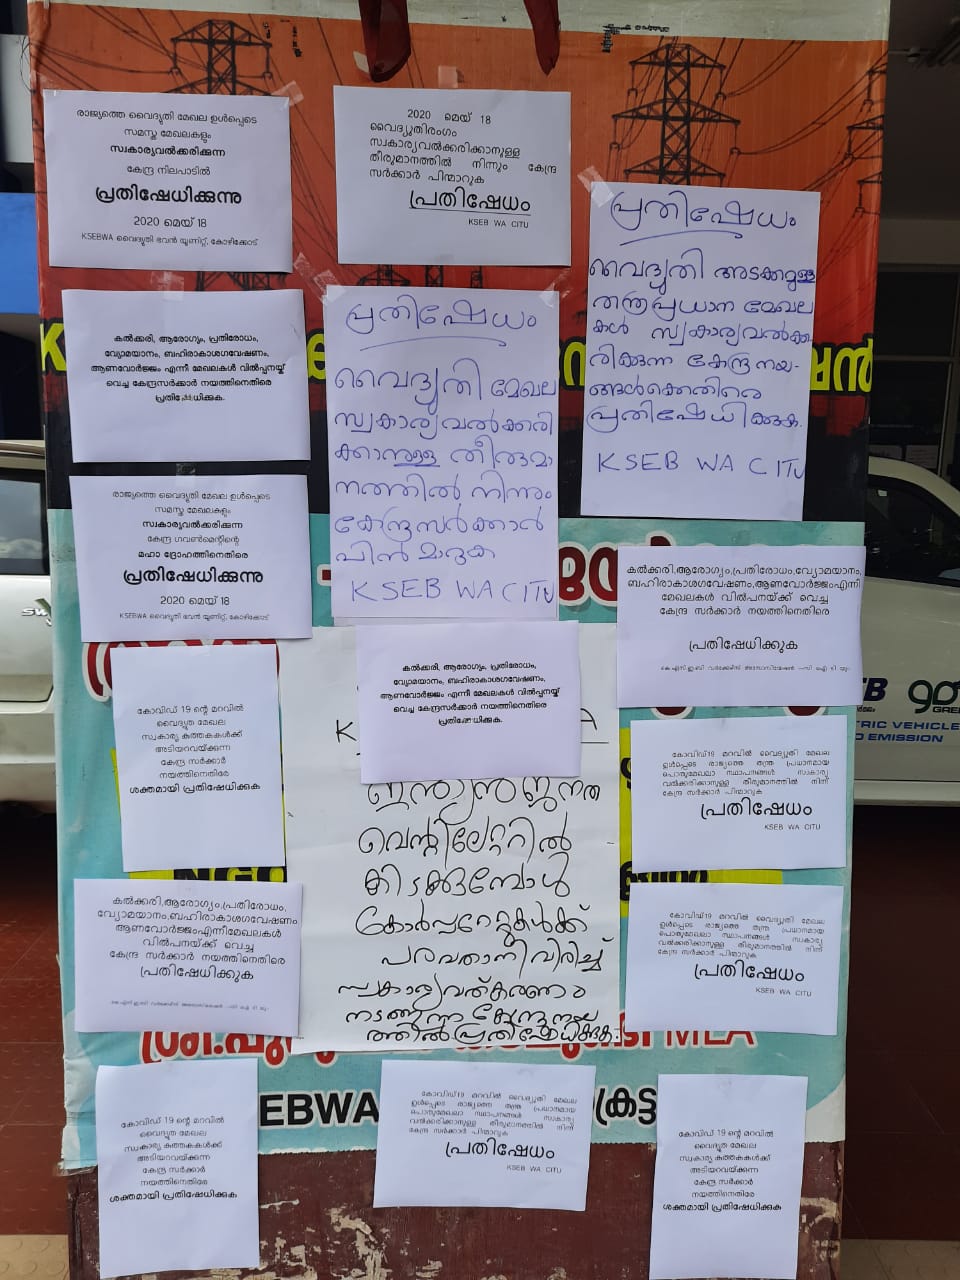 രാജ്യത്തെ വൈദ്യുതി മേഖല ഉൾപ്പെടെ
സമസ്ത മേഖലകളും
സ്വകാര്യവൽക്കരിക്കുന്ന
കേന്ദ്ര നിലപാടിൽ
പ്രതിഷേധിക്കുന്നു
2020 മെയ് 18
KSEBWA വൈദ്യുതി ഭവൻ യൂണിറ്റ്, കോഴിക്കോട്
2020 മെയ് 18
വൈദ്യുതിരംഗം
സ്വകാര്യവൽക്കരിക്കാനുള്ള
തീരുമാനത്തിൽ നിന്നും കേന്ദ്ര
സർക്കാർ പിന്മാറുക
പ്രതിഷേധം
KSEB WA CITU
പ്രതിഷേധം
വൈദ്യുതി അടക്കമുള്ള
തന്ത്രപ്രധാന മേഖല
കൾ സ്വകാര്യവൽക്ക
രിക്കുന്ന കേന്ദ്ര നയ-
ങ്ങൾക്കെതിരെ
പ്രതിഷേധിക്കുക.
KSEB WA CITU
കൽക്കരി, ആരോഗ്യം, പ്രതിരോധം,
വ്യോമയാനം, ബഹിരാകാശഗവേഷണം,
ആണവോർജ്ജം എന്നീ മേഖലകൾ വിൽപ്പനയ്ക്ക്
വെച്ച കേന്ദ്രസർക്കാർ നയത്തിനെതിരെ
പ്രതിഷേധിക്കുക.
പ്രതിഷേധം
വൈദ്യുതി മേഖല
സ്വകാര്യവൽക്കരി
ക്കാനുള്ള തീരുമാ
നത്തിൽ നിന്നും
കേന്ദ്രസർക്കാർ
പിൻ മാറുക
KSEB WA CITU
രാജ്യത്തെ വൈദ്യുതി മേഖല ഉൾപ്പെടെ
സമസ്ത മേഖലകളും
സ്വകാര്യവൽക്കരിക്കുന്ന
കേന്ദ്ര ഗവൺമെന്റിന്റെ
മഹാ ദ്രോഹത്തിനെതിരെ
പ്രതിഷേധിക്കുന്നു
2020 മെയ് 18
KSEBWA വൈദ്യുതി ഭവൻ യൂണിറ്റ്, കോഴിക്കോട്
കൽക്കരി,ആരോഗ്യം,പ്രതിരോധം,വ്യോമയാനം,
ബഹിരാകാശഗവേഷണം,ആണവോർജ്ജംഎന്നി
മേഖലകൾ വിൽപനയ്ക്ക് വെച്ച
കേന്ദ്ര സർക്കാർ നയത്തിനെതിരെ
പ്രതിഷേധിക്കുക
കെ എസ് ഇ ബി വർക്കേഴ്സ് അസോസിയേഷൻ -സി ഐ ടി യു-
കൽക്കരി, ആരോഗ്യം, പ്രതിരോധം,
വ്യോമയാനം, ബഹിരാകാശഗവേഷണം,
ആണവോർജ്ജം എന്നീ മേഖലകൾ വിൽപ്പനയ്ക്ക്
വെച്ച കേന്ദ്രസർക്കാർ നയത്തിനെതിരെ
പ്രതിഷേധിക്കുക.
കോവിഡ് 19 ന്റെ മറവിൽ
വൈദ്യുത മേഖല
സ്വകാര്യ കുത്തകകൾക്ക്
അടിയറവയ്ക്കുന്ന
കേന്ദ്ര സർക്കാർ
നയത്തിനെതിരേ
ശക്തമായി പ്രതിഷേധിക്കുക
ഇന്ത്യൻ ജനത
വെന്റിലേറ്ററിൽ
കിടക്കുമ്പോൾ
കോർപ്പറേറ്റുകൾക്ക്
പരവതാനി വിരിച്ച്
സ്വകാര്യവത്കരണം
നടത്തുന്ന കേന്ദ്രനയ
ത്തിൽ പ്രതിഷേധിക്കുക.
കോവിഡ്19 മറവിൽ വൈദ്യുതി മേഖല
ഉൾപ്പെടെ രാജ്യത്തെ തന്ത്ര പ്രധാനമായ
പൊതുമേഖലാ സ്ഥാപനങ്ങൾ സകാര്യ
വൽക്കരിക്കാനുള്ള തീരുമാനത്തിൽ നിന്ന്
കേന്ദ്ര സർക്കാർ പിന്മാറുക
പ്രതിഷേധം
KSEB WA CITU
കൽക്കരി,ആരോഗ്യം,പ്രതിരോധം,
വ്യോമയാനം,ബഹിരാകാശഗവേഷണം,
ആണവോർജ്ജംഎന്നിമേഖലകൾ
വിൽപനയ്ക്ക് വെച്ച
കേന്ദ്ര സർക്കാർ നയത്തിനെതിരെ
പ്രതിഷേധിക്കുക
കെ എസ് ഇ ബി വർക്കേഴ്സ് അസോസിയേഷൻ -സി ഐ ടി യു-
കോവിഡ്19 മറവിൽ വൈദ്യുതി മേഖല
ഉൾപ്പെടെ രാജ്യത്തെ തന്ത്ര പ്രധാനമായ
പൊതുമേഖലാ സ്ഥാപനങ്ങൾ സകാര്യ
വൽക്കരിക്കാനുള്ള തീരുമാനത്തിൽ നിന്ന്
കേന്ദ്ര സർക്കാർ പിന്മാറുക
പ്രതിഷേധം
KSEB WA CITU
MLA
EBWA
കോവിഡ് 19 ന്റെ മറവിൽ
വൈദ്യുത മേഖല
സ്വകാര്യ കുത്തകകൾക്ക്
അടിയറവയ്ക്കുന്ന
കേന്ദ്ര സർക്കാർ
നയത്തിനെതിരേ
ശക്തമായി പ്രതിഷേധിക്കുക
കോവിഡ്19 മറവിൽ വൈദ്യുതി മേഖല
ഉൾപ്പെടെ രാജ്യത്തെ തന്ത്ര പ്രധാനമായ
പൊതുമേഖലാ സ്ഥാപനങ്ങൾ സകാര്യ
വൽക്കരിക്കാനുള്ള തീരുമാനത്തിൽ നിന്ന്
കേന്ദ്ര സർക്കാർ പിന്മാറുക
പ്രതിഷേധം
KSEB WA CITU
കോവിഡ് 19 ന്റെ മറവിൽ
വൈദ്യുത മേഖല
സ്വകാര്യ കുത്തകകൾക്ക്
അടിയറവയ്ക്കുന്ന
കേന്ദ്ര സർക്കാർ
നയത്തിനെതിരേ
ശക്തമായി പ്രതിഷേധിക്കുക
TRIC VEHICLE
O EMISSION